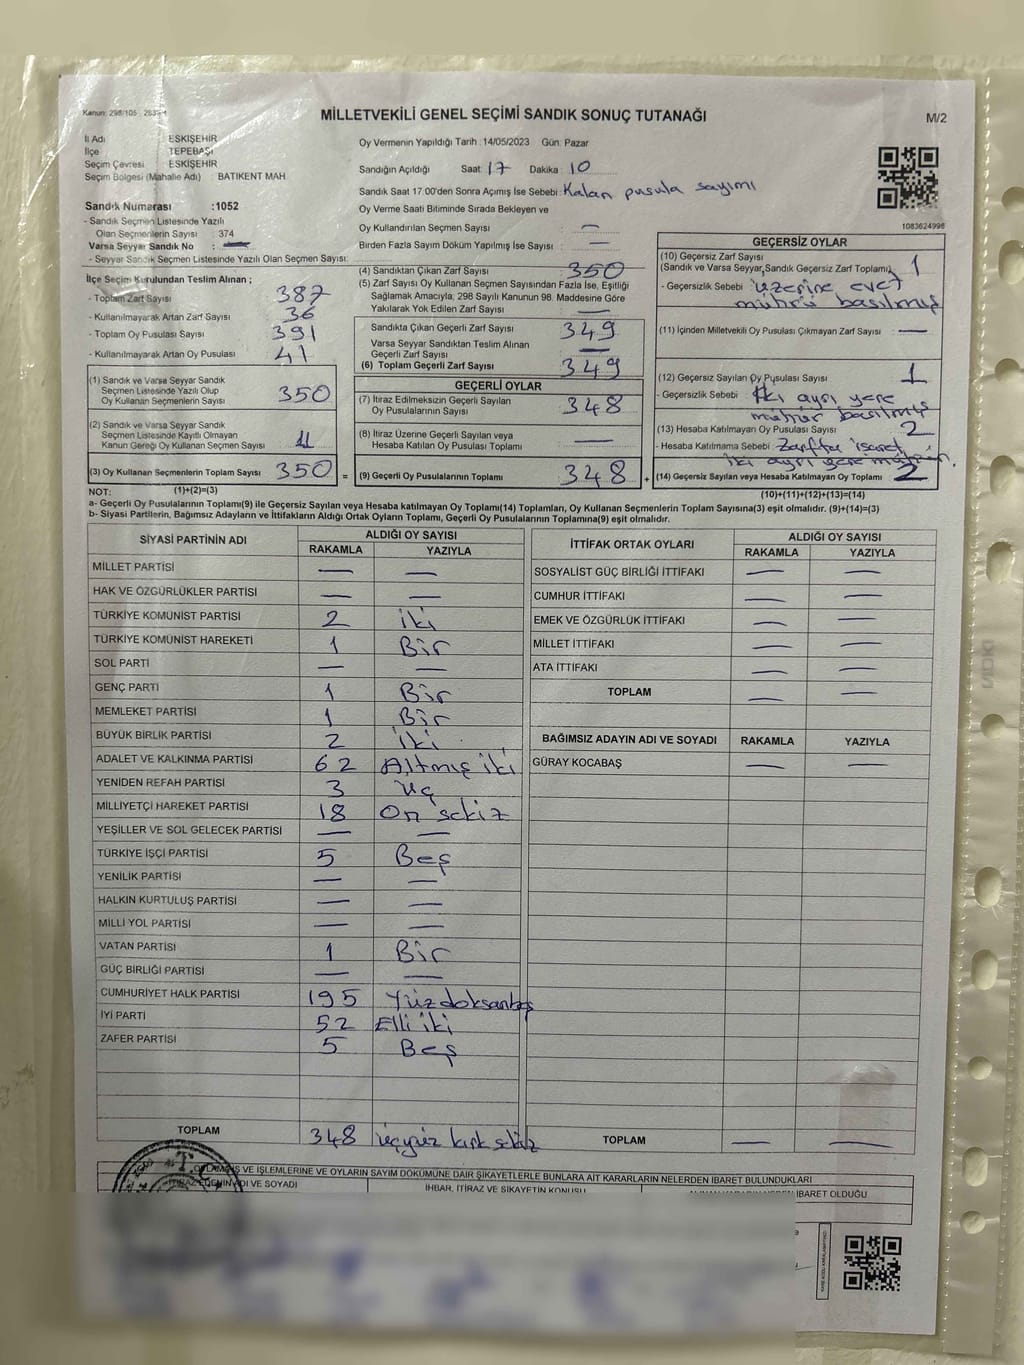 Kanun: 298/105, 2839/
MİLLETVEKİLİ GENEL SEÇİMİ SANDIK SONUÇ TUTANAĞI
M/2
İl Adı ESKİŞEHİR
İlçe TEPEBAŞI
Seçim Çevresi : ESKİŞEHİR
Seçim Bölgesi (Mahalle Adı) : BATIKENT MAH
Oy Vermenin Yapıldığı Tarih : 14/05/2023 Gün: Pazar
Sandığın Açıldığı Saat : 17 Dakika : 10
Sandık Saat 17.00'den Sonra Açılmış İse Sebebi : Kalan pusula sayımı
1083624998
Sandık Numarası :1052
- Sandık Seçmen Listesinde Yazılı
Olan Seçmenlerin Sayısı : 374
Varsa Seyyar Sandık No : —
- Seyyar Sandık Seçmen Listesinde Yazılı Olan Seçmen Sayısı:
Oy Verme Saati Bitiminde Sırada Bekleyen ve
Oy Kullandırılan Seçmen Sayısı : —
Birden Fazla Sayım Döküm Yapılmış İse Sayısı : —
İlçe Seçim Kurulundan Teslim Alınan ;
- Toplam Zarf Sayısı 387
- Kullanılmayarak Artan Zarf Sayısı 36
- Toplam Oy Pusulası Sayısı 391
- Kullanılmayarak Artan Oy Pusulası 41
(1) Sandık ve Varsa Seyyar Sandık
Seçmen Listesinde Yazılı Olup
Oy Kullanan Seçmenlerin Sayısı 350
(2) Sandık ve Varsa Seyyar Sandık
Seçmen Listesinde Kayıtlı Olmayan
Kanun Gereği Oy Kullanan Seçmen Sayısı
(3) Oy Kullanan Seçmenlerin Toplam Sayısı 350 =
(1)+(2)=(3)
(4) Sandıktan Çıkan Zarf Sayısı 350
(5) Zarf Sayısı Oy Kullanan Seçmen Sayısından Fazla İse, Eşitliği
Sağlamak Amacıyla, 298 Sayılı Kanunun 98. Maddesine Göre
Yakılarak Yok Edilen Zarf Sayısı —
Sandıkta Çıkan Geçerli Zarf Sayısı 349
Varsa Seyyar Sandıktan Teslim Alınan
Geçerli Zarf Sayısı —
(6) Toplam Geçerli Zarf Sayısı 349
GEÇERLİ OYLAR
(7) İtiraz Edilmeksizin Geçerli Sayılan
Oy Pusulalarının Sayısı 348
(8) İtiraz Üzerine Geçerli Sayılan veya
Hesaba Katılan Oy Pusulası Toplamı —
(9) Geçerli Oy Pusulalarının Toplamı 348 +
GEÇERSİZ OYLAR
(10) Geçersiz Zarf Sayısı
(Sandık ve Varsa Seyyar Sandık Geçersiz Zarf Toplamı) 1
- Geçersizlik Sebebi : üzerine evet
mührü basılmış
(11) İçinden Milletvekili Oy Pusulası Çıkmayan Zarf Sayısı —
(12) Geçersiz Sayılan Oy Pusulası Sayısı 1
- Geçersizlik Sebebi : İki ayrı yere
mühür basılmış
(13) Hesaba Katılmayan Oy Pusulası Sayısı 2
- Hesaba Katılmama Sebebi : Zarfta işaret,
iki ayrı yere
(14) Geçersiz Sayılan veya Hesaba Katılmayan Oy Toplamı 2
(10)+(11)+(12)+(13)=(14)
NOT:
a- Geçerli Oy Pusulalarının Toplamı(9) ile Geçersiz Sayılan veya Hesaba katılmayan Oy Toplamı(14) Toplamları, Oy Kullanan Seçmenlerin Toplam Sayısına(3) eşit olmalıdır. (9)+(14)=(3)
b- Siyasi Partilerin, Bağımsız Adayların ve İttifakların Aldığı Ortak Oyların Toplamı, Geçerli Oy Pusulalarının Toplamına(9) eşit olmalıdır.
SİYASİ PARTİNİN ADI ALDIĞI OY SAYISI
RAKAMLA YAZIYLA
MİLLET PARTİSİ — —
HAK VE ÖZGÜRLÜKLER PARTİSİ — —
TÜRKİYE KOMÜNİST PARTİSİ 2 iki
TÜRKİYE KOMÜNİST HAREKETİ 1 Bir
SOL PARTİ — —
GENÇ PARTİ 1 Bir
MEMLEKET PARTİSİ 1 Bir
BÜYÜK BİRLİK PARTİSİ 2 iki
ADALET VE KALKINMA PARTİSİ 62 Altmış iki
YENİDEN REFAH PARTİSİ 3 üç
MİLLİYETÇİ HAREKET PARTİSİ 18 On sekiz
YEŞİLLER VE SOL GELECEK PARTİSİ — —
TÜRKİYE İŞÇİ PARTİSİ 5 Beş
YENİLİK PARTİSİ — —
HALKIN KURTULUŞ PARTİSİ — —
MİLLİ YOL PARTİSİ — —
VATAN PARTİSİ 1 Bir
GÜÇ BİRLİĞİ PARTİSİ — —
CUMHURİYET HALK PARTİSİ 195 Yüz doksanbeş
İYİ PARTİ 52 Elli iki
ZAFER PARTİSİ 5 Beş
TOPLAM 348 üçyüz kırk sekiz
İTTİFAK ORTAK OYLARI ALDIĞI OY SAYISI
RAKAMLA YAZIYLA
SOSYALİST GÜÇ BİRLİĞİ İTTİFAKI — —
CUMHUR İTTİFAKI — —
EMEK VE ÖZGÜRLÜK İTTİFAKI — —
MİLLET İTTİFAKI — —
ATA İTTİFAKI — —
TOPLAM — —
BAĞIMSIZ ADAYIN ADI VE SOYADI RAKAMLA YAZIYLA
GÜRAY KOCABAŞ — —
TOPLAM — —
İŞ VE İŞLEMLERİNE VE OYLARIN SAYIM DÖKÜMÜNE DAİR ŞİKAYETLERLE BUNLARA AİT KARARLARIN NELERDEN İBARET BULUNDUKLARI
İTİRAZ EDENİN ADI VE SOYADI İHBAR, İTİRAZ VE ŞİKAYETİN KONUSU İBARET OLDUĞU
T.C.